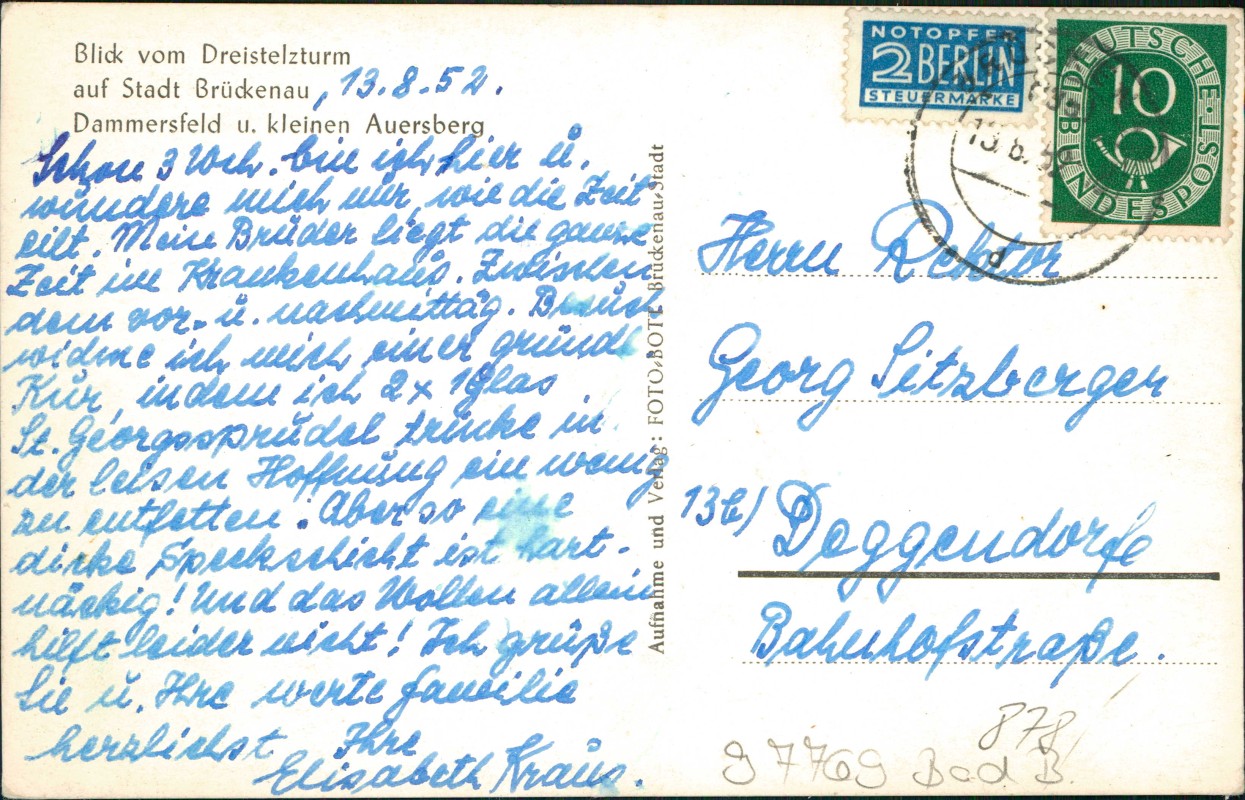 Blick vom Dreistelzturm
auf Stadt Brückenau, 13.8.52.
Dammersfeld u. kleinen Auersberg
Schon 3 Woch. bin ich hier u.
wundere mich nur, wie die Zeit
eilt. Meine Bruder liegt die ganze
Zeit im Krankenhaus. Zwischen
dem vor- u. nachmittäg. Besuch
widme ich mich einer gründl.
Kur, indem ich 2x 1 Glas
St. Georgssprudel trinke in
der leisen Hoffnung ein wenig
zu entfetten. Aber so eine
dicke Speckschicht ist hart-
näckig! Und das Wollen allein
hilft leider nicht! Ich grüße
Sie u. Ihre werte Familie
herzlichst Ihre
Elisabeth Kraus.
Aufnahme und Verlag: FOTO-BOTT Brückenau-Stadt
NOTOPFER
2 BERLIN
STEUERMARKE
DEUTSCHE BUNDESPOST
10
d
Herrn Rektor
Georg Sitzberger
13b) Deggendorf
Bahnhofstraße.
878
9 7769 Bad B.